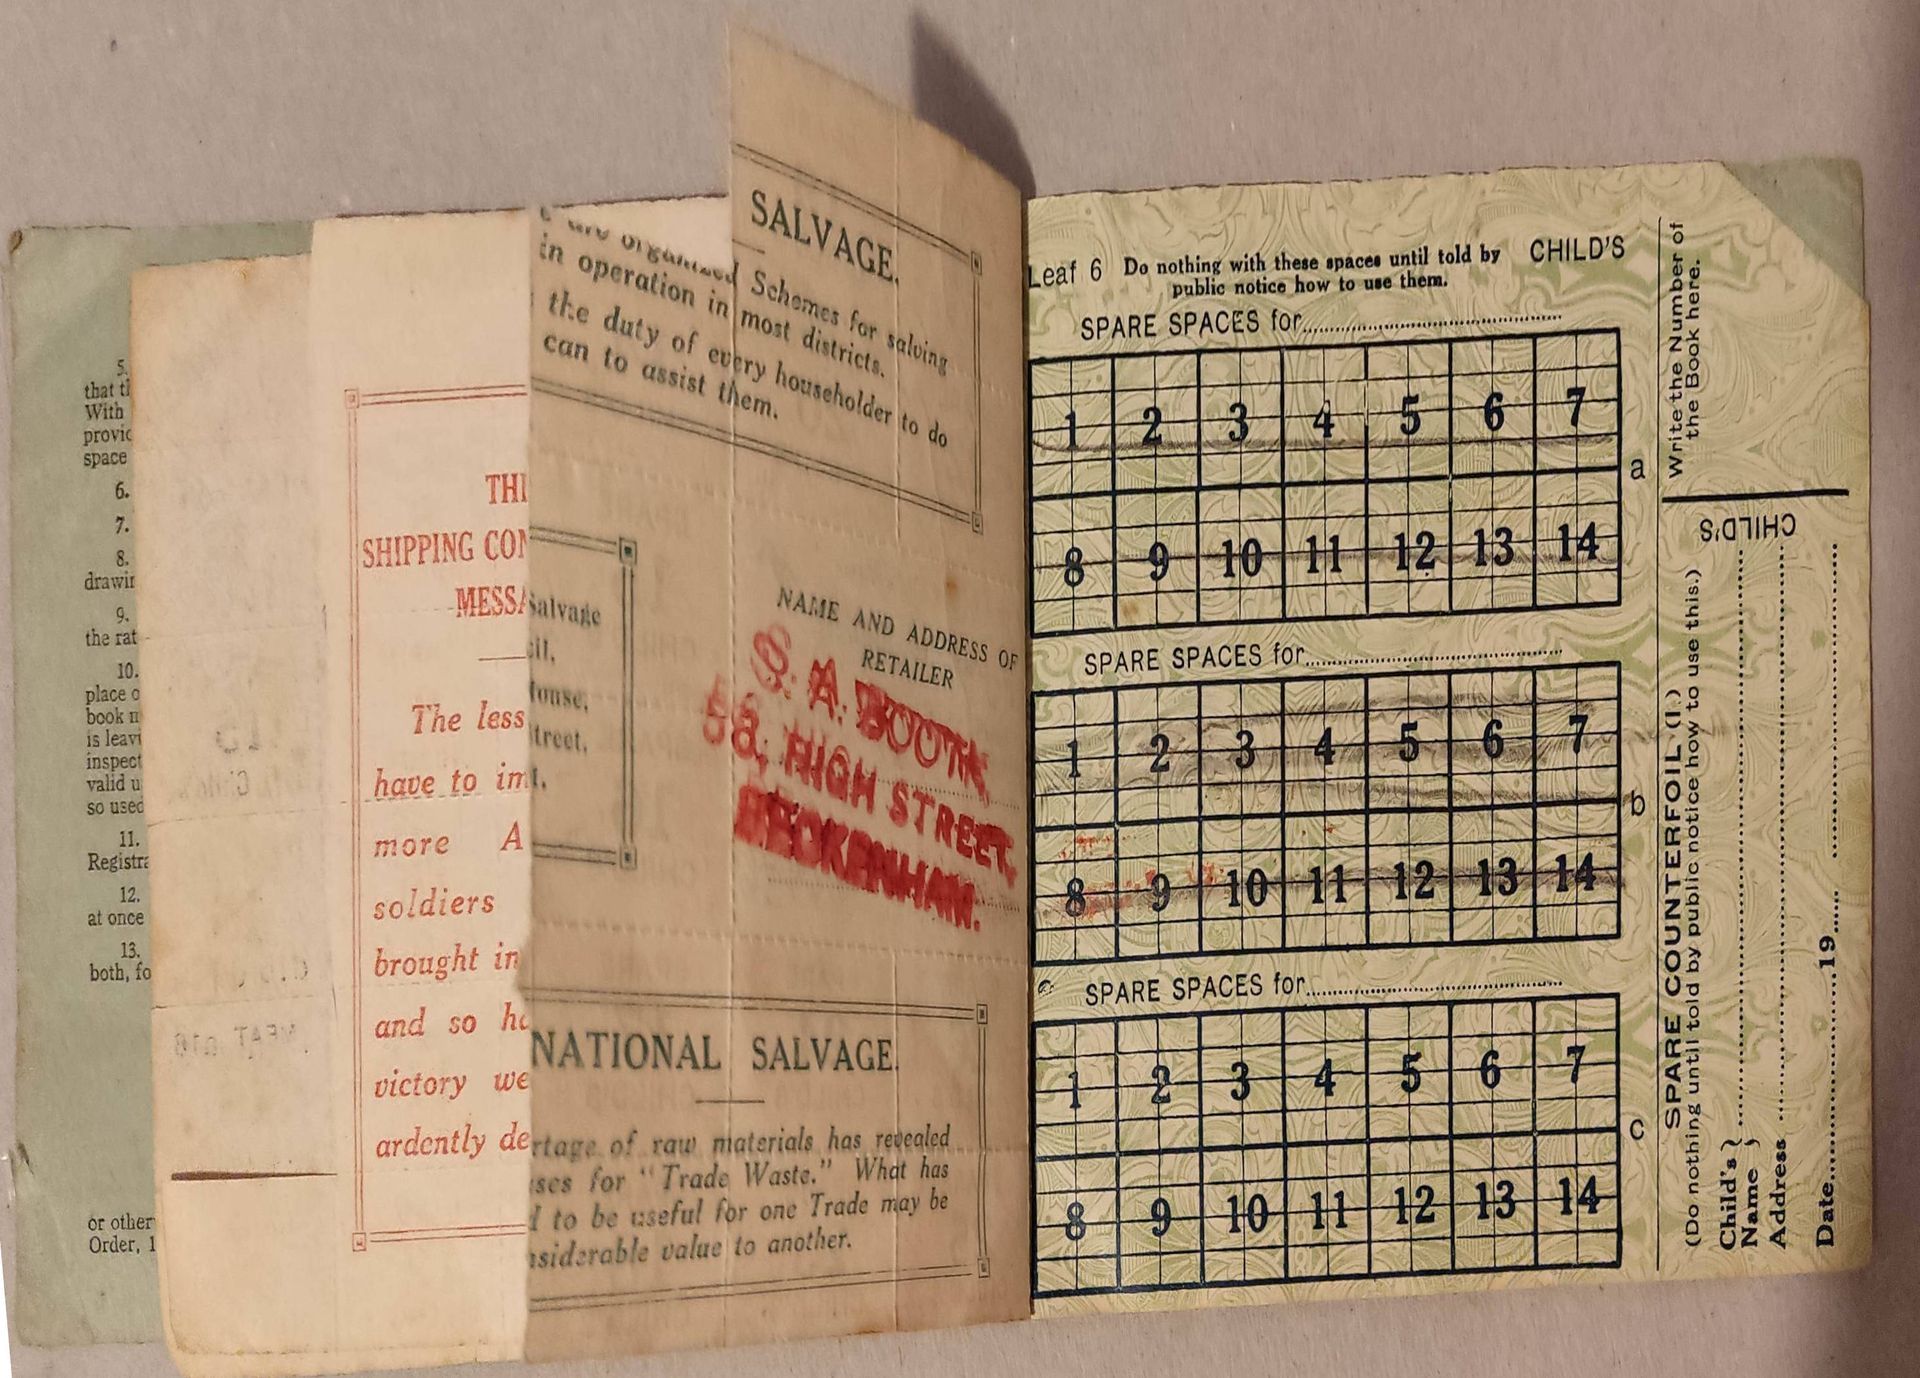 5.
that th
With
provid
space
6.
7.
8.
drawin
9.
the rat
10.
place o
book m
is leavi
inspect
valid u
so used
11.
Registra
12.
at once
13.
both, fo
or other
Order, 1
SHIPPING CON
MESSA
The less
have to im
more A
soldiers
brought in
and so ha
victory we
ardently de
SALVAGE.
are organized Schemes for salving
in operation in most districts.
the duty of every householder to do
can to assist them.
Salvage
cil,
House,
treet,
t.
NAME AND ADDRESS OF
RETAILER
S. A. BOOTH,
58, HIGH STREET,
BECKENHAM.
NATIONAL SALVAGE.
rtage of raw materials has revealed
uses for "Trade Waste." What has
d to be useful for one Trade may be
nsiderable value to another.
Leaf 6 Do nothing with these spaces until told by CHILD'S
public notice how to use them.
SPARE SPACES for
1 2 3 4 5 6 7
a
8 9 10 11 12 13 14
SPARE SPACES for
1 2 3 4 5 6 7
b
8 9 10 11 12 13 14
SPARE SPACES for
1 2 3 4 5 6 7
c
8 9 10 11 12 13 14
Write the Number of
the Book here.
CHILD'S
SPARE COUNTERFOIL (I.)
(Do nothing until told by public notice how to use this.)
Child's }
Name }
Address
Date 19